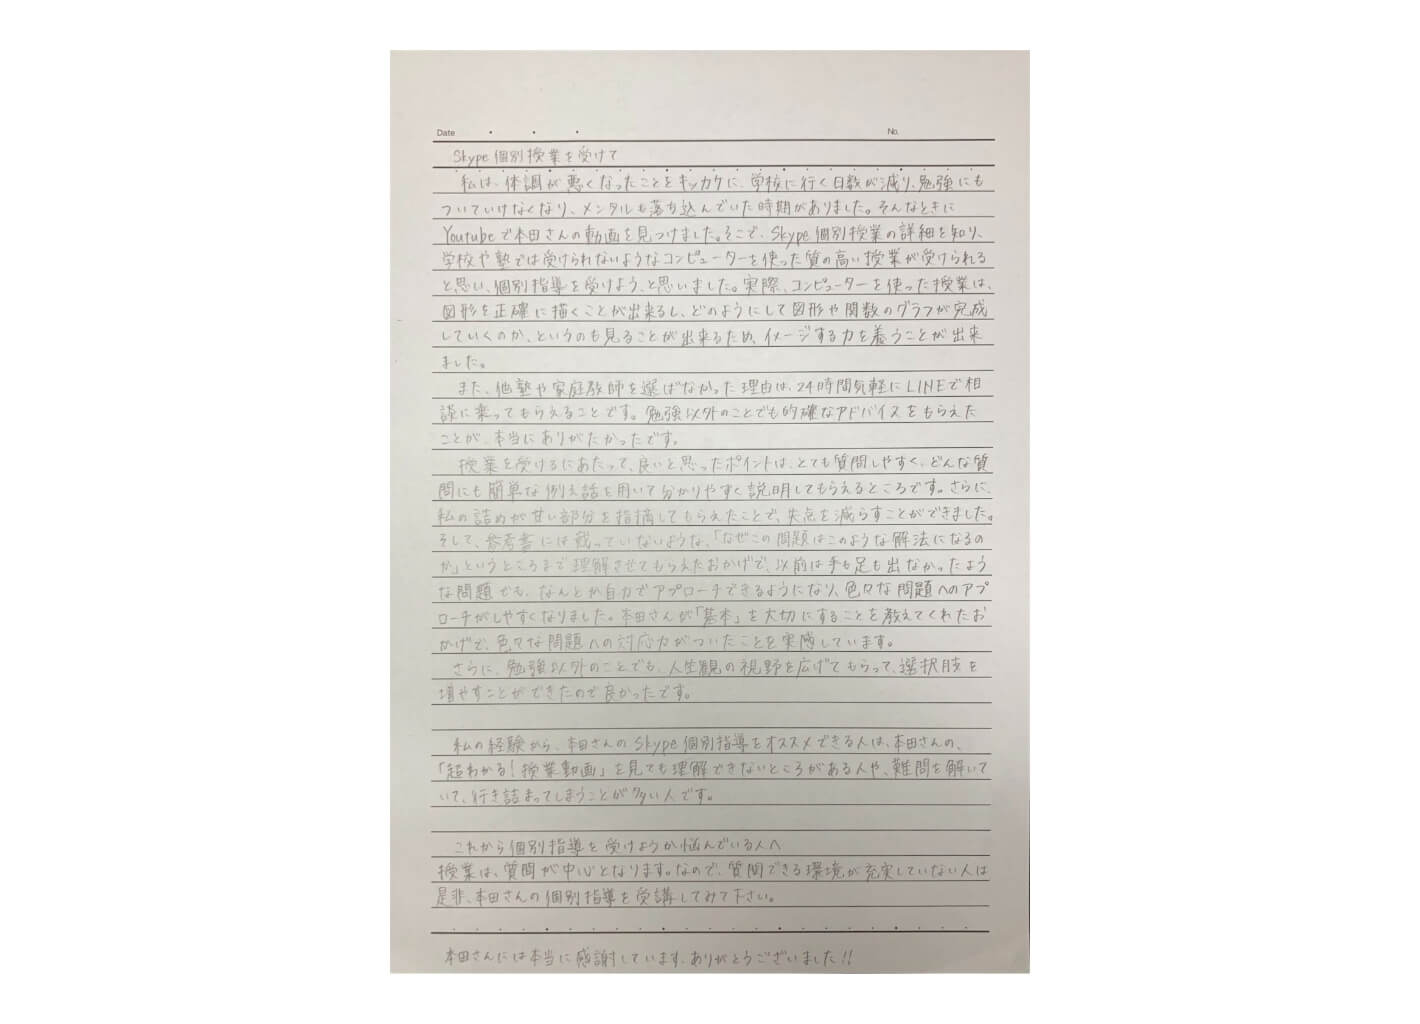 Date
No.
Skype個別授業を受けて
私は、体調が悪くなったことをキッカケに、学校に行く日数が減り、勉強にも
ついていけなくなり、メンタルも落ち込んでいた時期がありました。そんなときに
Youtubeで本田さんの動画を見つけました。そこで、Skype個別授業の詳細を知り、
学校や塾では受けられないようなコンピューターを使った質の高い授業が受けられる
と思い、個別指導を受けよう、と思いました。実際、コンピューターを使った授業は、
図形を正確に描くことが出来るし、どのようにして図形や関数のグラフが完成
していくのか、というのも見ることが出来るため、イメージする力を養うことが出来
ました。
また、他塾や家庭教師を選ばなかった理由は、24時間気軽にLINEで相
談に乗ってもらえることです。勉強以外のことでも的確なアドバイスをもらえた
ことが、本当にありがたかったです。
授業を受けるにあたって、良いと思ったポイントは、とても質問しやすく、どんな質
問にも簡単な例え話を用いて分かりやすく説明してもらえるところです。さらに、
私の詰めが甘い部分を指摘してもらえたことで、失点を減らすことができました。
そして、参考書には載っていないような、「なぜこの問題はこのような解法になるの
か」というところまで理解させてもらえたおかげで、以前は手も足も出なかったよう
な問題でも、なんとか自力でアプローチできるようになり、色々な問題へのアプ
ローチがしやすくなりました。本田さんが「基本」を大切にすることを教えてくれたお
かげで、色々な問題への対応力がついたことを実感しています。
さらに、勉強以外のことでも、人生観の視野を広げてもらって、選択肢を
増やすことができたので良かったです。
私の経験から、本田さんのSkype個別指導をオススメできる人は、本田さんの、
「超わかる！授業動画」を見ても理解できないところがある人や、難問を解いて
いて、行き詰まってしまうことが多い人です。
これから個別指導を受けようか悩んでいる人へ
授業は、質問が中心となります。なので、質問できる環境が充実していない人は
是非、本田さんの個別指導を受講してみて下さい。
本田さんには本当に感謝しています、ありがとうございました!!